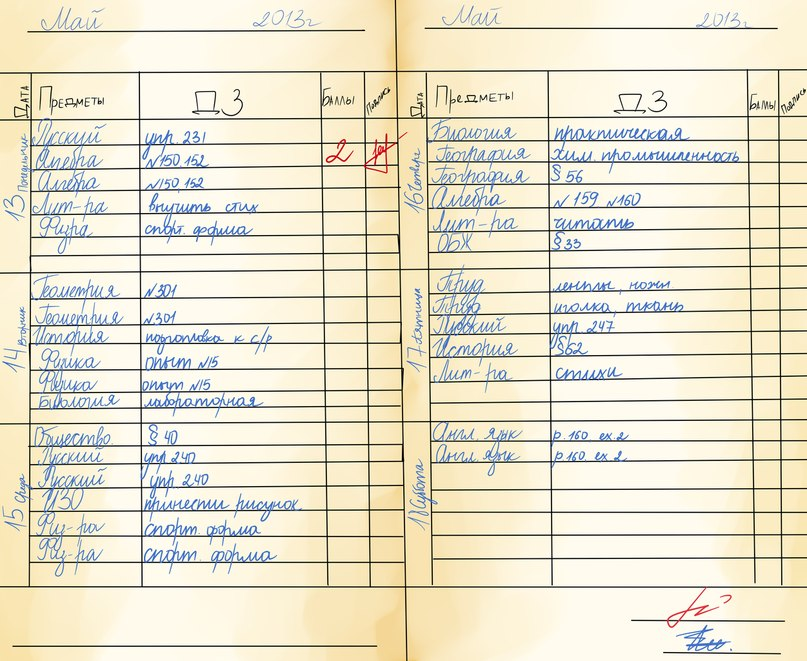 Май 2013г
Дата Предметы ДЗ Баллы Подпись
13 Понедельник
Русский упр. 231
Алгебра №150,152 2
Алгебра №150,152
Лит-ра выучить стих
Физра спорт. форма
14 Вторник
Геометрия №301
Геометрия №301
История подготовка к с/р
Физика опыт №15
Физика опыт №15
Биология лабораторная
15 Среда
Общество. § 40
Русский упр 240
Русский упр 240
ИЗО принести рисунок.
Физ-ра спорт. форма
Физ-ра спорт. форма
Май 2013г.
Дата Предметы ДЗ Баллы Подпись
16 Четверг
Биология практическая
География хим. промышленность
География § 56
Алгебра №159 №160
Лит-ра читать
ОБЖ §33
17 Пятница
Труд ленты, ножн.
Труд иголка, ткань
Русский упр. 247
История §62
Лит-ра стихи
18 Суббота
Англ. язык р. 160. ex. 2
Англ. язык р 160. ex. 2